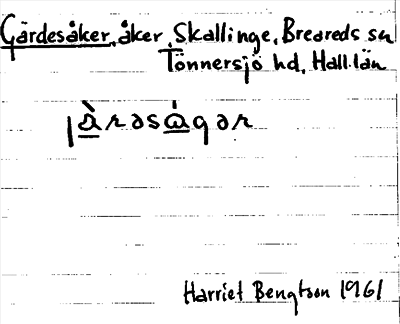 Gärdesåker, åker, Skallinge, Breareds sn
Tönnersjö hd, Hall.län
Harriet Bengtson 1961